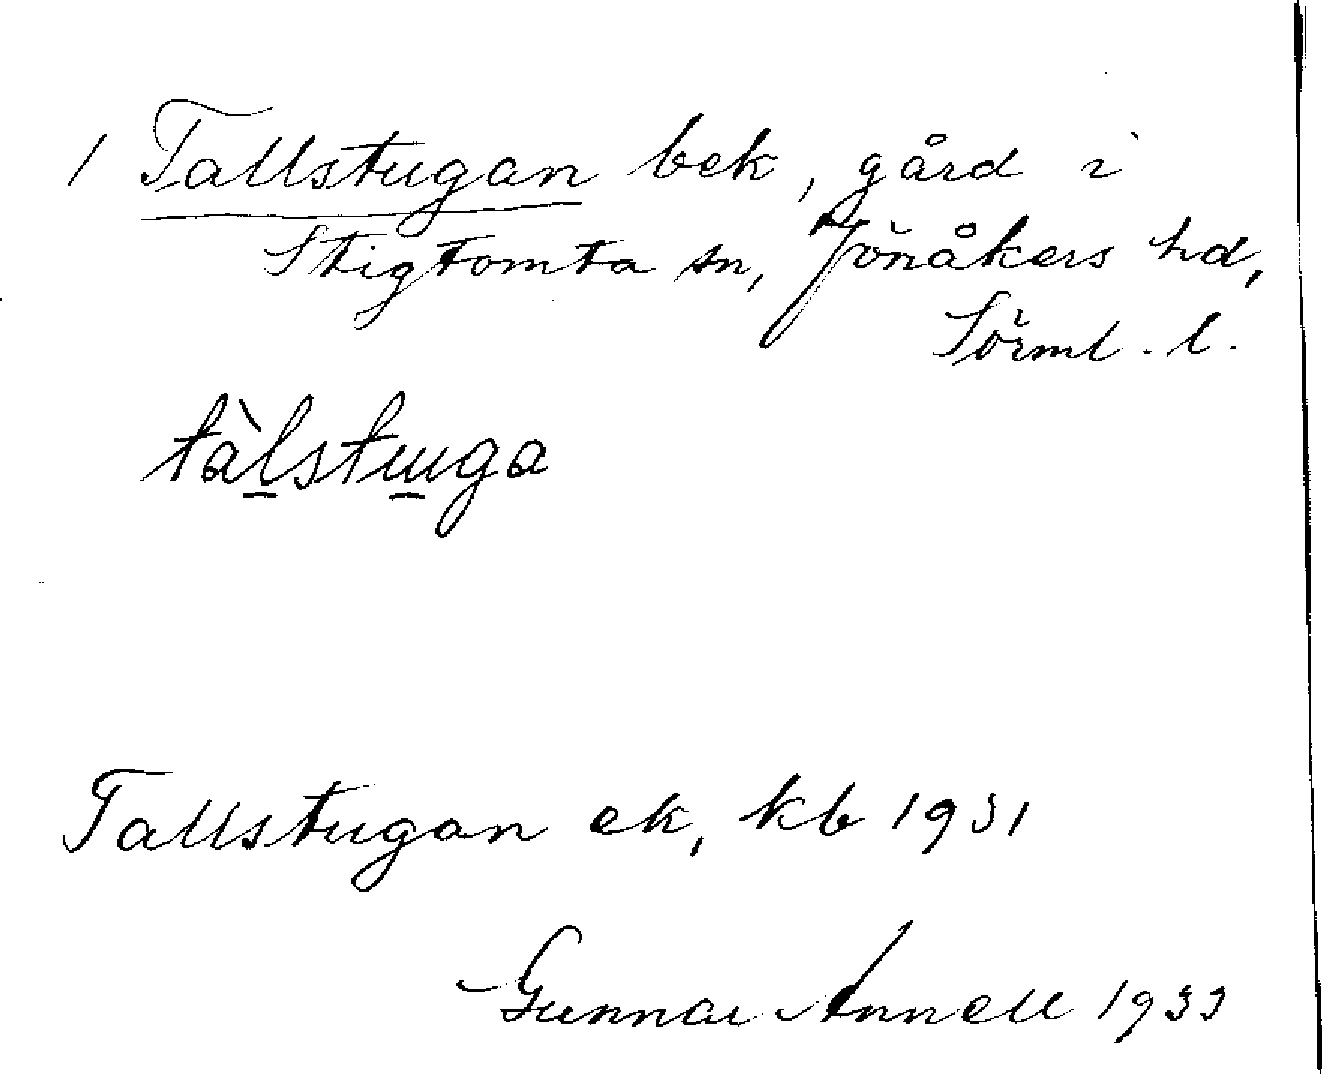 1 Tallstugan bek, gård i
Stigtomta sn, Jönåkers hd,
Sörml. l.
tàl̲stɯ̲ga
Tallstugan ek, kb 1931
Gunnar Annell 1933